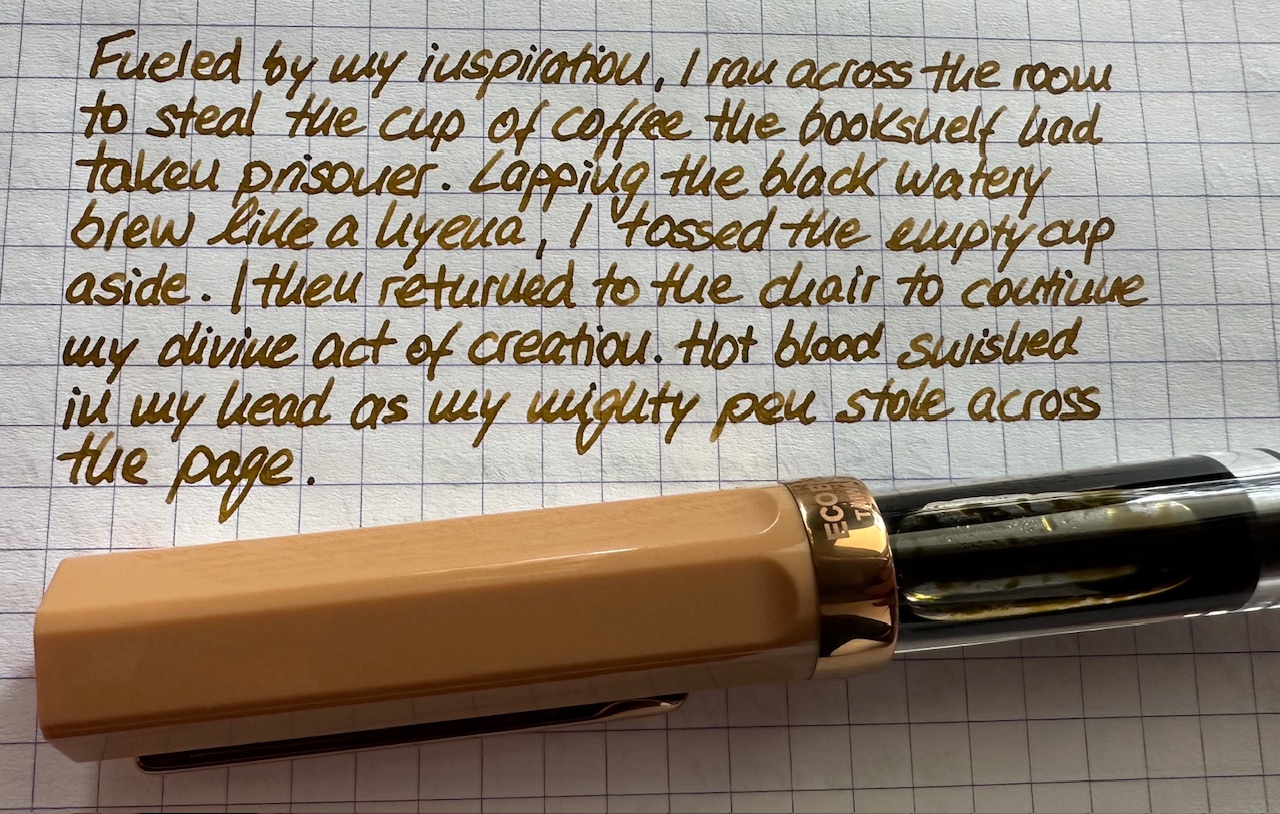 Fueled by my inspiration, I ran across the room
to steal the cup of coffee the bookshelf had
taken prisoner. Lapping the black watery
brew like a hyena, I tossed the empty cup
aside. I then returned to the chair to continue
my divine act of creation. Hot blood swished
in my head as my mighty pen stole across
the page.
ECO